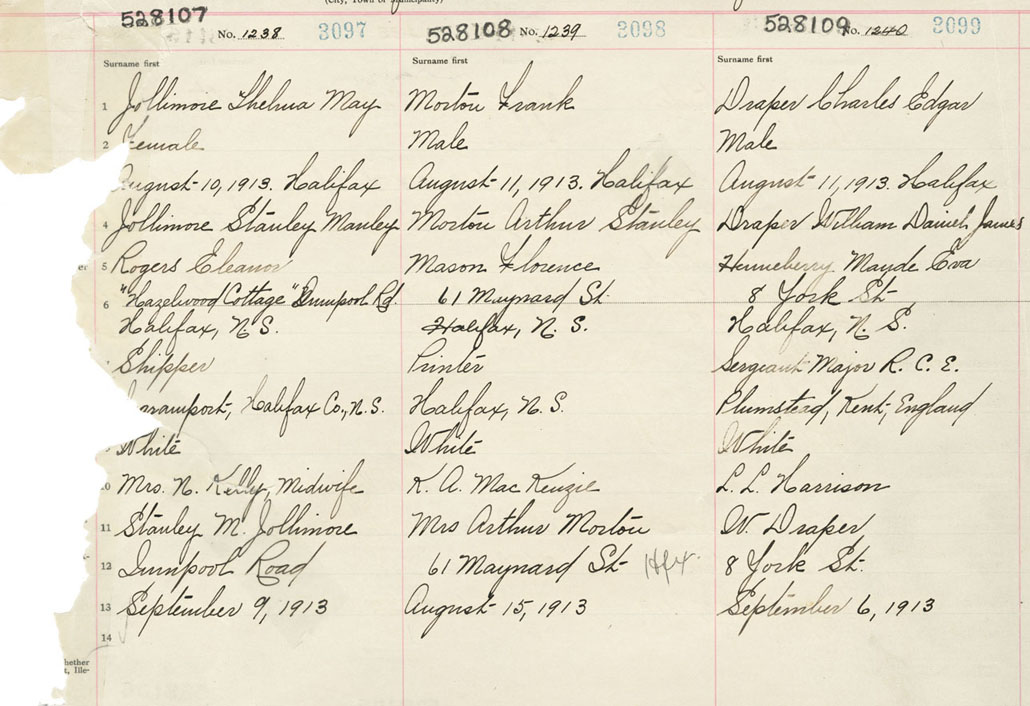 (City, Town or Municipality)
528107 No. 1238 3097
Surname first
1 Jollimore Thelma May
2 Female
August 10, 1913. Halifax
4 Jollimore Stanley Manley
5 Rogers Eleanor
6 "Hazelwood Cottage" Rd.
Halifax, N.S.
Shipper
Halifax Co., N.S.
White
10 Mrs. N. Kelly, Midwife
11 Stanley M. Jollimore
12 Road
13 September 9, 1913
14
528108 No. 1239 3098
Surname first
Morton Frank
Male
August 11, 1913. Halifax
Morton Arthur Stanley
Mason Florence
61 Maynard St.
Halifax, N.S.
Printer
Halifax, N.S.
White
K. A. MacKenzie
Mrs Arthur Morton
61 Maynard St Hfx.
August 15, 1913
528109 No. 1240 3099
Surname first
Draper Charles Edgar
Male
August 11, 1913. Halifax
Draper William Daniel James
Henneberry Maude Eva
8 York St
Halifax, N.S.
Sergeant Major R.C.E.
Plumstead, Kent, England
White
L. L. Harrison
W. Draper
8 York St.
September 6, 1913
er
hether
t, Ille-